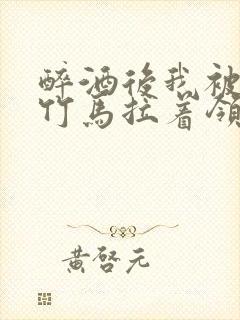 醉酒後我被
竹馬拉着領
黃啓元